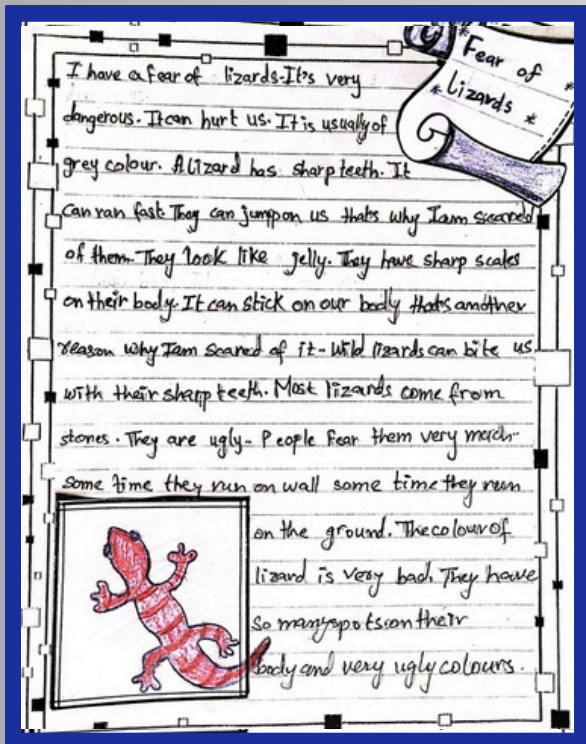 * Fear of
* lizards *
I have a fear of lizards. It's very
dangerous. It can hurt us. It is usually of
grey colour. A lizard has sharp teeth. It
can ran fast. They can jump on us that's why I am scared
of them. They look like jelly. They have sharp scales
on their body. It can stick on our body that's another
reason why I am scared of it.. Wild lizards can bite us
with their sharp teeth. Most lizards come from
stones. They are ugly.. People fear them very much..
Some time they run on wall some time they run
on the ground. The colour of
lizard is very bad. They have
so many spots on their
body and very ugly colours.